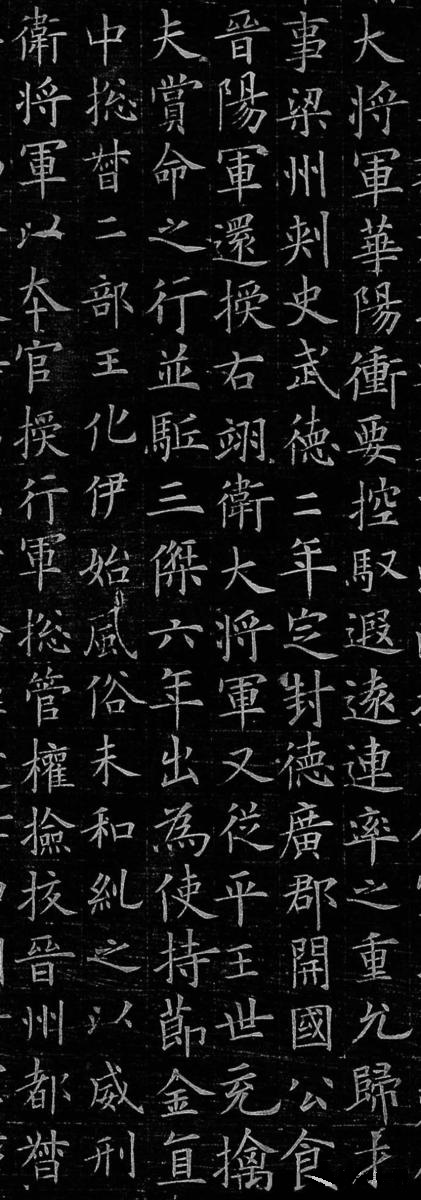 大将軍華陽衝要控馭遐遠連率之重允歸才
事梁州刾史武徳二年定封德廣郡開國公食
晉陽軍還授右翊衛大将軍又従平王世充擒
夫賞命之行並駈三傑六年出為使持莭金直
中揔督二部王化伊始風俗未和糺之以威刑
衛将軍以夲官授行軍揔管權撿挍晉州都督